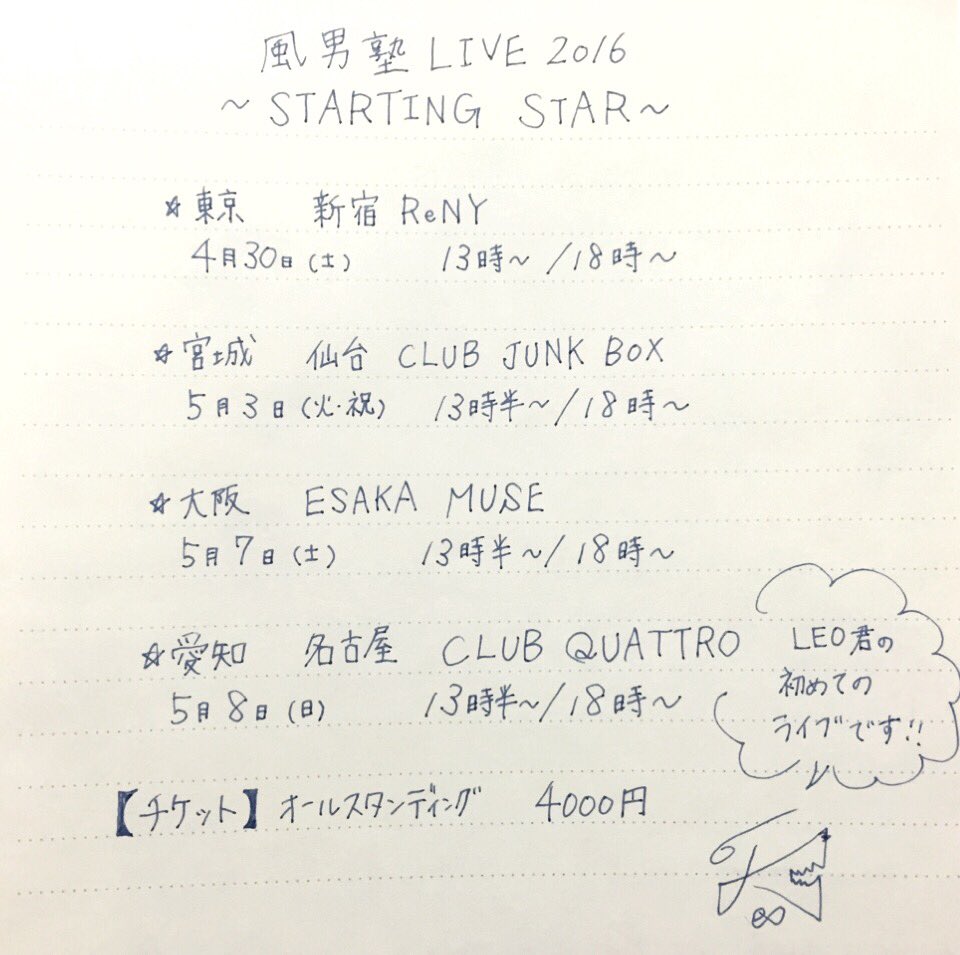 風男塾 LIVE 2016
～STARTING STAR～
☆東京 新宿 ReNY
4月30日(土) 13時～/18時～
☆宮城 仙台 CLUB JUNK BOX
5月3日(火・祝) 13時半～/18時～
☆大阪 ESAKA MUSE
5月7日(土) 13時半～/18時～
☆愛知 名古屋 CLUB QUATTRO
5月8日(日) 13時半～/18時～
LEO君の
初めての
ライブです!!
【チケット】オールスタンディング 4000円